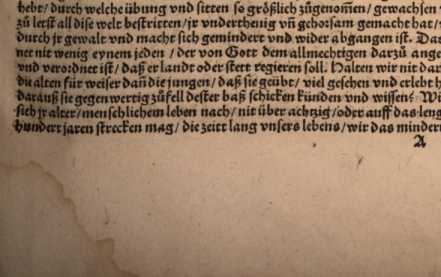 hebt/ durch welche übung vnd sitten so größlich zůgenom̃en/ gewachsen
zů lerst all dise welt bestritten/ jr vnderthenig vñ gehorsam gemacht hat/
durch jr gewalt vnd macht sich gemindert vnd wider abgangen ist. Das
net nit wenig eynem jeden / der von Gott dem allmechtigen darzů ange
vnd verordnet ist/ daß er landt oder stett regieren soll. Halten wir nit dar
die alten für weiser dañ die jungen/ daß sie geübt/ viel gesehen vnd erlebt h
darauß sie gegenwertig zůfell dester baß schicken künden vnd wissen: Wi
sich jr alter/ menschlichem leben nach/ nit über achtzig/ oder auff das leng
hundert jaren strecken mag/ die zeitt lang vnsers lebens/ wir das mindert
A